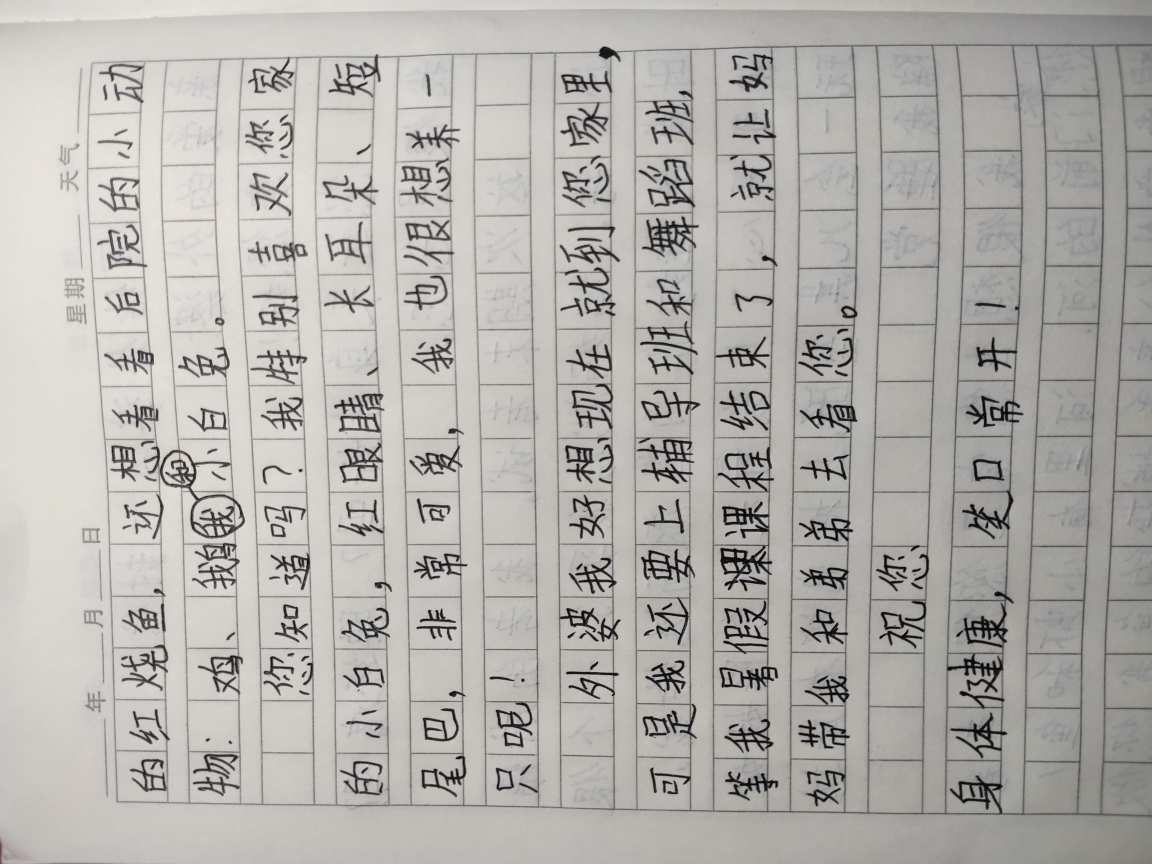 年 月 日 星期 天气
的红烧鱼，还想看看后院的小动
物：鸡、鹅和小白兔。
您知道吗？我特别喜欢您家
的小白兔，红眼睛、长耳朵、短
尾巴，非常可爱，我也很想养一
只呢！
外婆我好想现在就到您家里，
可是我还要上辅导班和舞蹈班，
等我暑假课程结束了，就让妈
妈带我和弟弟去看您。
祝您
身体健康，笑口常开！